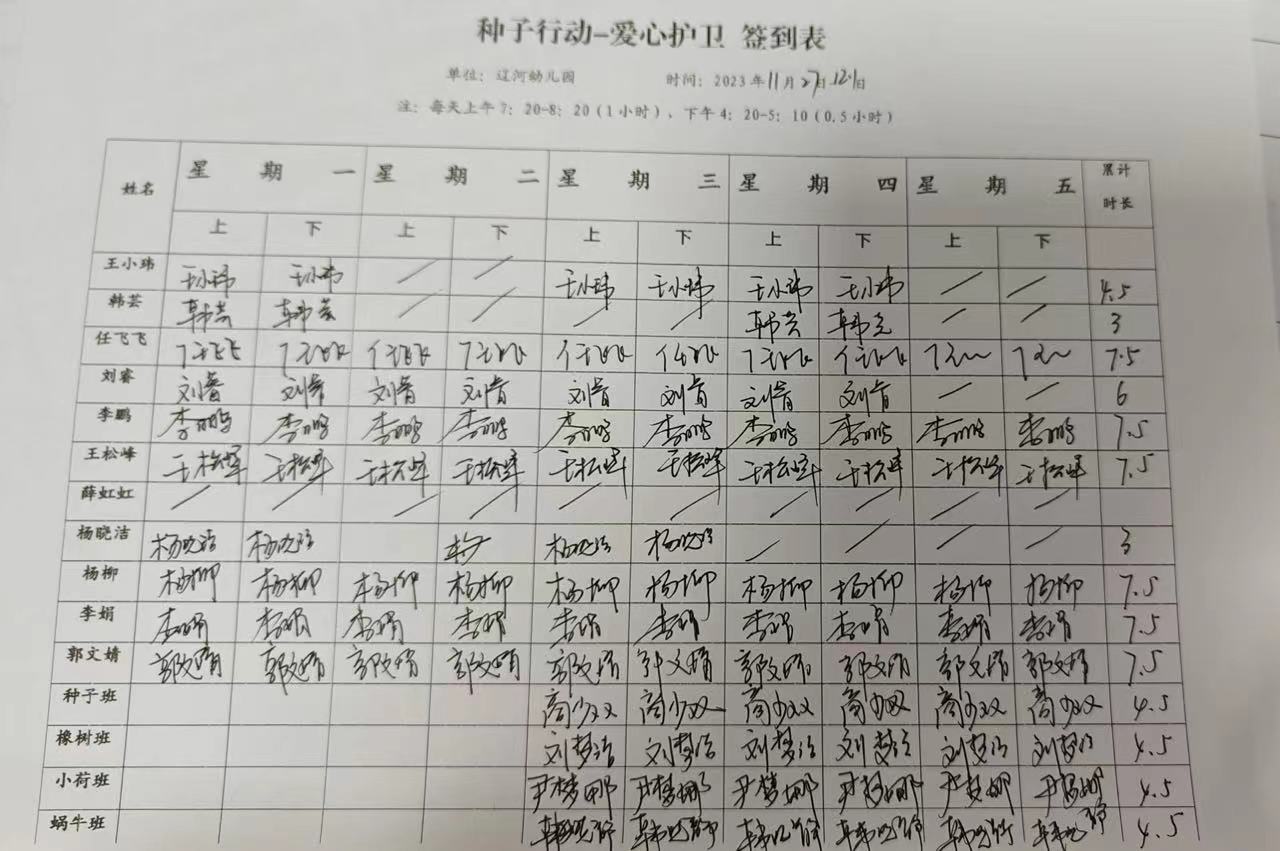 种子行动-爱心护卫 签到表
单位：辽河幼儿园 时间：2023年11月27日12.1日
注：每天上午7：20-8：20(1小时)、下午4：20-5：10(0.5小时)
姓名 星期一 星期二 星期三 星期四 星期五 累计时长
上 下 上 下 上 下 上 下 上 下
王小玮 王小玮 王小玮 / / 王小玮 王小玮 王小玮 王小玮 / / 4.5
韩芸 韩芸 韩芸 / / / / 韩芸 韩芸 / / 3
任飞飞 任飞飞 任飞飞 任飞飞 任飞飞 任飞飞 任飞飞 任飞飞 任飞飞 7.5
刘睿 刘睿 刘睿 刘睿 刘睿 刘睿 刘睿 刘睿 刘睿 / / 6
李鹏 李鹏 李鹏 李鹏 李鹏 李鹏 李鹏 李鹏 李鹏 李鹏 李鹏 7.5
王松峰 王松峰 王松峰 王松峰 王松峰 王松峰 王松峰 王松峰 王松峰 王松峰 王松峰 7.5
薛虹虹 / / / / / / / / / /
杨晓洁 杨晓洁 杨晓洁 杨晓洁 杨晓洁 / / / / 3
杨柳 杨柳 杨柳 杨柳 杨柳 杨柳 杨柳 杨柳 杨柳 杨柳 杨柳 7.5
李娟 李娟 李娟 李娟 李娟 李娟 李娟 李娟 李娟 李娟 李娟 7.5
郭文婧 郭文婧 郭文婧 郭文婧 郭文婧 郭文婧 郭文婧 郭文婧 郭文婧 郭文婧 郭文婧 7.5
种子班 商少双 商少双 商少双 商少双 商少双 商少双 4.5
橡树班 刘梦洁 刘梦洁 刘梦洁 刘梦洁 刘梦洁 刘梦洁 4.5
小荷班 尹梦娜 尹梦娜 尹梦娜 尹梦娜 尹梦娜 尹梦娜 4.5
蜗牛班 4.5